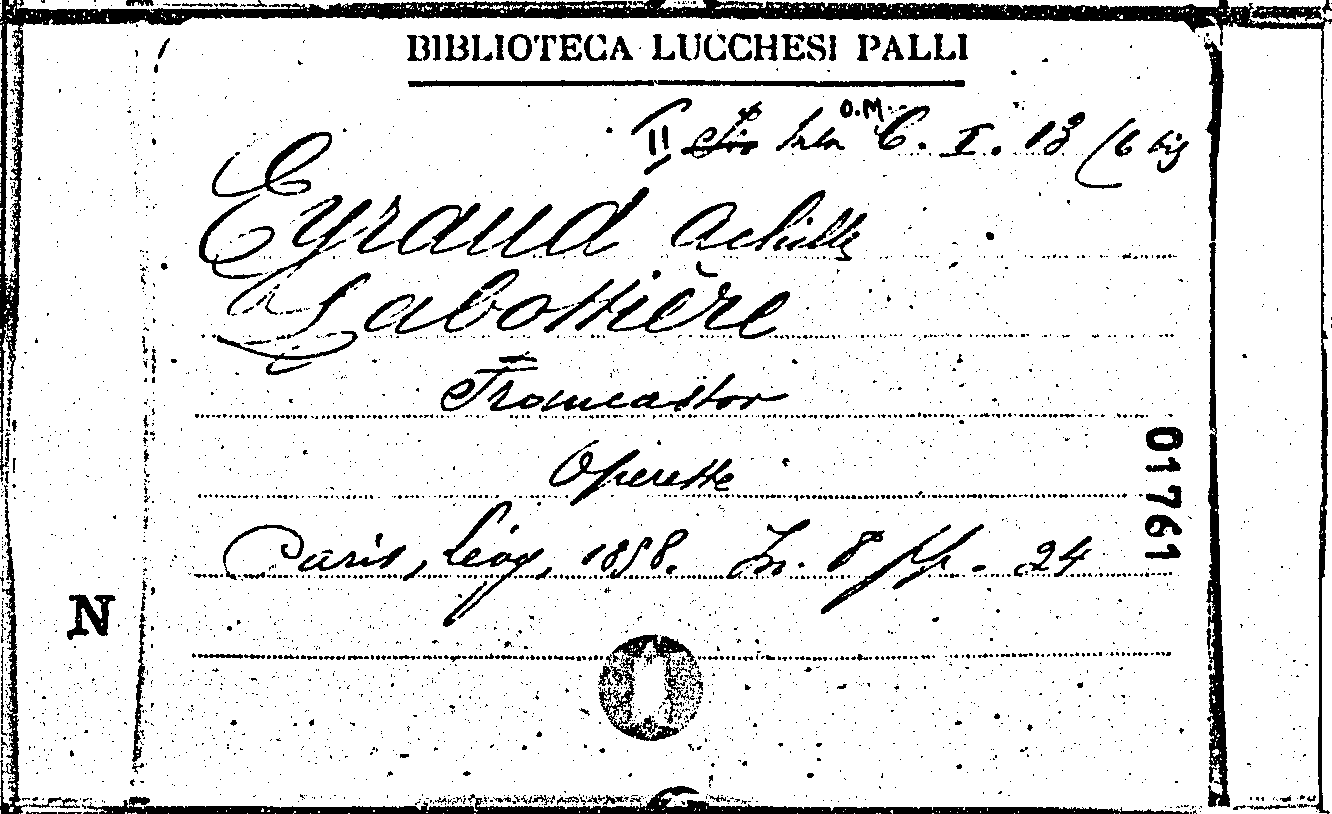 BIBLIOTECA LUCCHESI PALLI
O.M.
II Sala C. I. 13 (6 bis
Eyraud Achille
Labottière
Tromcastor
Operette
Paris, Lévy, 1858. In. 8° pp. 24
01761
N